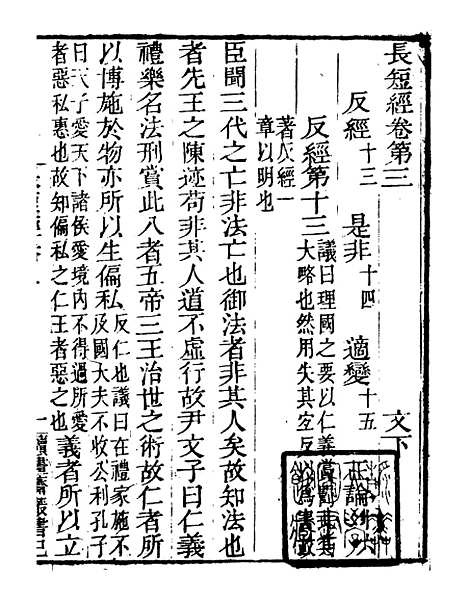 長短經卷第三 文下
反經十三 是非十四 適變十五
反經第十三議曰理國之要以仁義賞罰
大略也然用失其宜反以為害故
著反經一
章以明也
臣聞三代之亡非法亡也御法者非其人矣故知法也
者先王之陳迹苟非其人道不虛行故尹文子曰仁義
禮樂名法刑賞此八者五帝三王治世之術故仁者所
以博施於物亦所以生偏私反仁也議曰在禮家施不
及國大夫不收公利孔子
曰天子愛天下諸侯愛境內不得過所愛
者惡私惠也故知偏私之仁王者惡之也義者所以立
一
讀畫齋叢書己